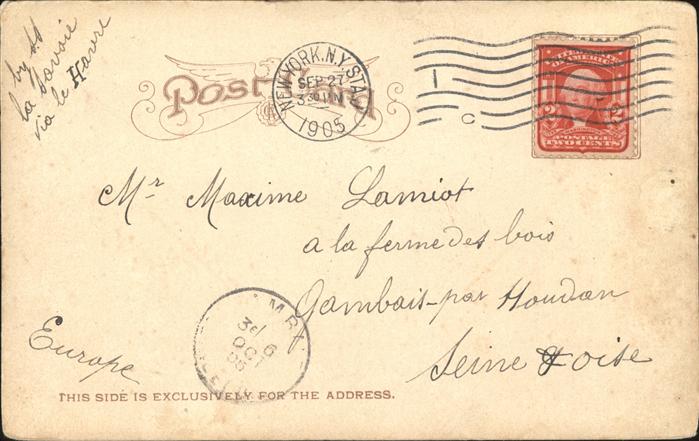 by SS
la Savoie
via le Havre
Post Card
NEW YORK, N.Y. STA.
SEP 27
3 30 PM
1905
1
C
OF AMERICA
2 2
POSTAGE
TWO CENTS
Mr Maxime Lamiot
a la ferme des bois
Gambais-par Houdan
Seine & oise
Europe
3e 6
OCT
05
THIS SIDE IS EXCLUSIVELY FOR THE ADDRESS.